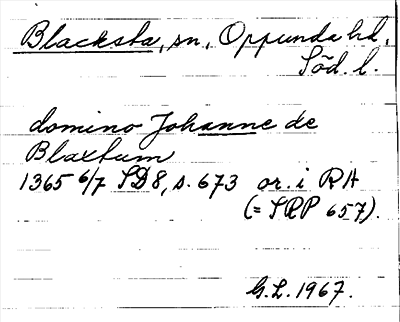 Blacksta, sn, Oppunda hd,
Söd. l.
domino Johanne de
Blaxtum
1365 6/7 SD 8, s. 673 or. i RA
(= SRP 657).
G.L. 1967.